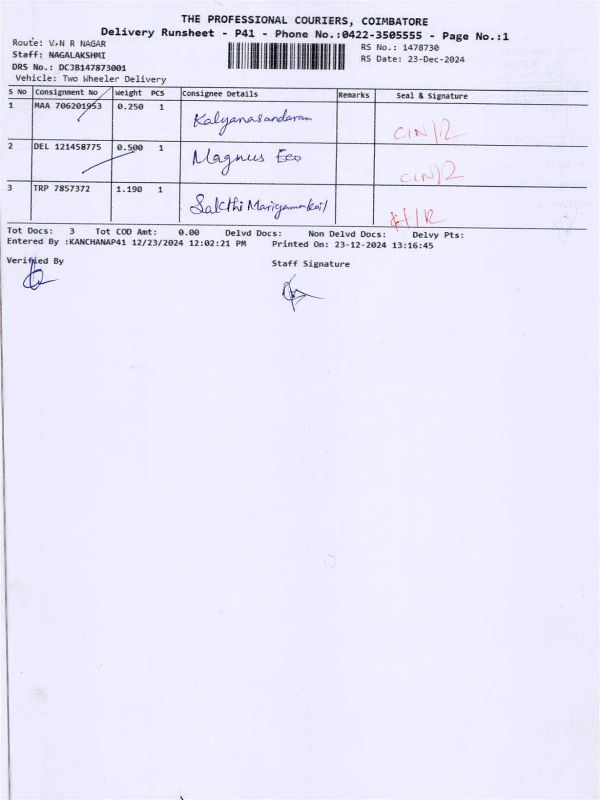 THE PROFESSIONAL COURIERS, COIMBATORE
Delivery Runsheet - P41 - Phone No.:0422-3505555 - Page No.:1
Route: V.N R NAGAR
RS No.: 1478730
Staff: NAGALAKSHMI
RS Date: 23-Dec-2024
DRS No.: DCJB147873001
Vehicle: Two Wheeler Delivery
S No Consignment No Weight PCS Consignee Details Remarks Seal & Signature
1 MAA 706201953 0.250 1 Kalyanasundaram
2 DEL 121458775 0.500 1 Magnus Eco
3 TRP 7857372 1.190 1 Sakthi
Tot Docs: 3 Tot COD Amt: 0.00 Delvd Docs: Non Delvd Docs: Delvy Pts:
Entered By :KANCHANAP41 12/23/2024 12:02:21 PM Printed On: 23-12-2024 13:16:45
Verified By Staff Signature